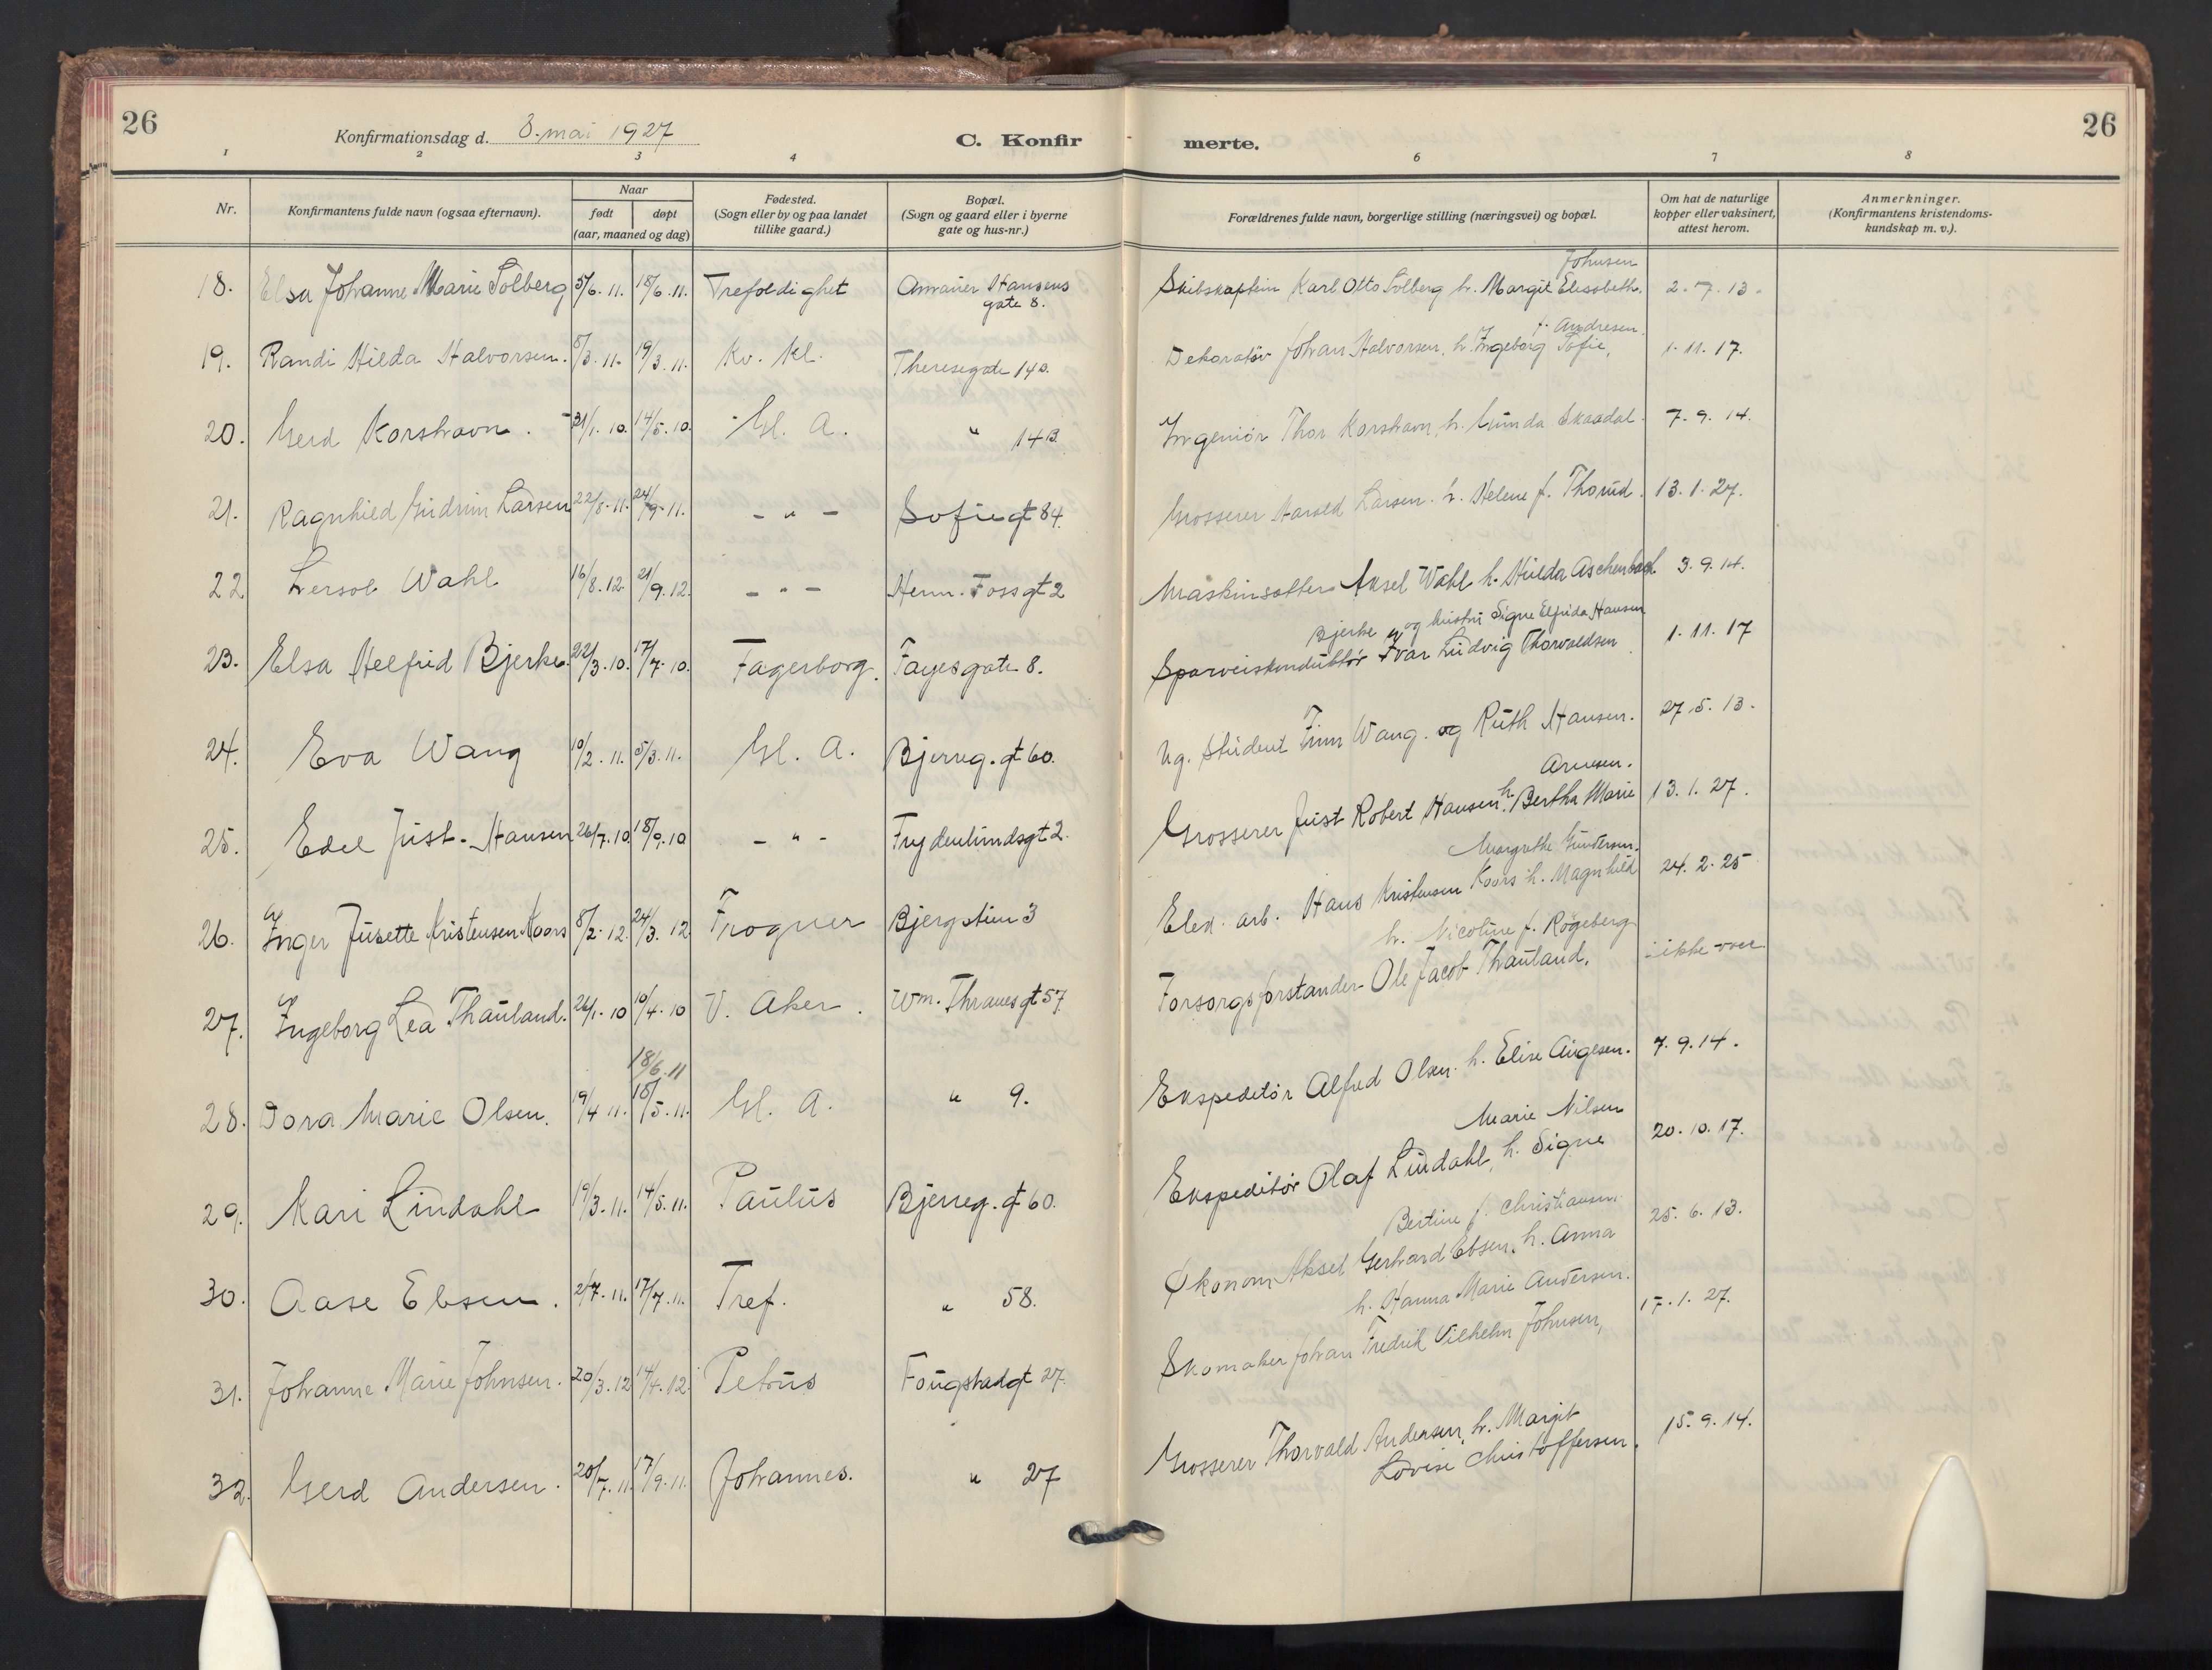 26
Konfirmationsdag d. 8. mai 1927
C. Konfir
merte.
26
1 2 3 4 6 7 8
Nr.
Konfirmantens fulde navn (ogsaa efternavn).
Naar
født døpt
(aar, maaned og dag)
Fødested.
(Sogn eller by og paa landet
tillike gaard.)
Bopæl.
(Sogn og gaard eller i byerne
gate og hus-nr.)
Forældrenes fulde navn, borgerlige stilling (næringsvei) og bopæl.
Om hat de naturlige
kopper eller vaksinert,
attest herom.
Anmerkninger.
(Konfirmantens kristendoms-
kundskap m. v.).
Johnsen
18. Elsa Johanne Marie Solberg 5/6. 11. 18/6. 11. Trefoldighet Hansens Skibskaptein Karl Otto Solberg h. Margit Elisabeth. 2. 7. 13.
gate 8.
f. Andresen.
19. Randi Hilda Halvorsen. 8/3. 11. 19/3. 11. Kv. kl. Theresegate 14 B. Dekoratør Johan Halvorsen, h. Ingeborg Sofie, 1. 11. 17.
20. Gerd Korshavn. 31/1. 10. 14/5. 10. Gl. A. " 14 B. Ingeniør Thor Korshavn, h. Gunda Skaadal. 7. 9. 14.
21. Ragnhild Gudrun Larsen 22/8. 11. 24/9. 11. - " - Sofiegt 84. Grosserer Harald Larsen. h. Helene f. Thorud. 13. 1. 27.
22 Wahl 16/8. 12. 21/9. 12. - " - Herm. Fossgt 2 Maskinsætter Aksel Wahl h. Hilda Aschenbach. 3. 9. 14.
Bjerke og hustru Signe Elfrida Hansen
23. Elsa Helfrid Bjerke. 22/3. 10. 17/7. 10. Fagerborg. Fayesgate 8. Sporveiskonduktør Ivar Ludvig Thorvaldsen 1. 11. 17
24. Eva Wang 10/2. 11. 5/3. 11. Gl. A. Bjerreg. gt 60. Ug. student Finn Wang. og Ruth Hansen. 27. 5. 13.
Arnesen.
25. Edel Just-Hansen 26/7. 10 18/9. 10 - " - Frydenlundsgt 2. Grosserer Just Robert Hansen, h. Bertha Marie 13. 1. 27.
Margrethe Gundersen.
26. Inger Jusette Kristensen Koors 8/2. 12. 24/3. 12 Frogner Bjergstien 3 Elek. arb. Hans Kristensen Koors h. Magnhild 24. 2. 25
h. Nicoline f. Røgeberg
27. Ingeborg Lea Thauland. 26/1. 10 10/4. 10 V. Aker. Wm. Thranesgt 57. Forsorgsforstander Ole Jacob Thauland. ikke vac
18/6. 11
28. Dora Marie Olsen. 19/4 11. 18/5. 11. Gl. A. " 9. Ekspeditør Alfred Olsen. h. Elise Aagesen. 7. 9. 14.
Marie Nilsen
29. Kari Lindahl 19/3. 11. 14/5. 11. Paulus Bjerreg. gt 60. Ekspeditør Olaf Lindahl, h. Signe 20. 10. 17.
Bertine f. Christiansen.
30. Aase Ebsen. 2/7. 11. 17/7. 11. Tref. " 58. Økonom Aksel Gerhard Ebsen, h. Anna 25. 6. 13.
h. Hanna Marie Andersen.
31. Johanne Marie Johnsen. 20/3. 12 14/4. 12. Petrus Fougstadgt 27. Skomaker Johan Fredrik Vilhelm Johnsen, 17. 1. 27.
32. Gerd Andersen. 20/7. 11. 17/9. 11. Johannes. " 27 Grosserer Thorvald Andersen, h. Margit 15. 9. 14.
Lovise Christoffersen.